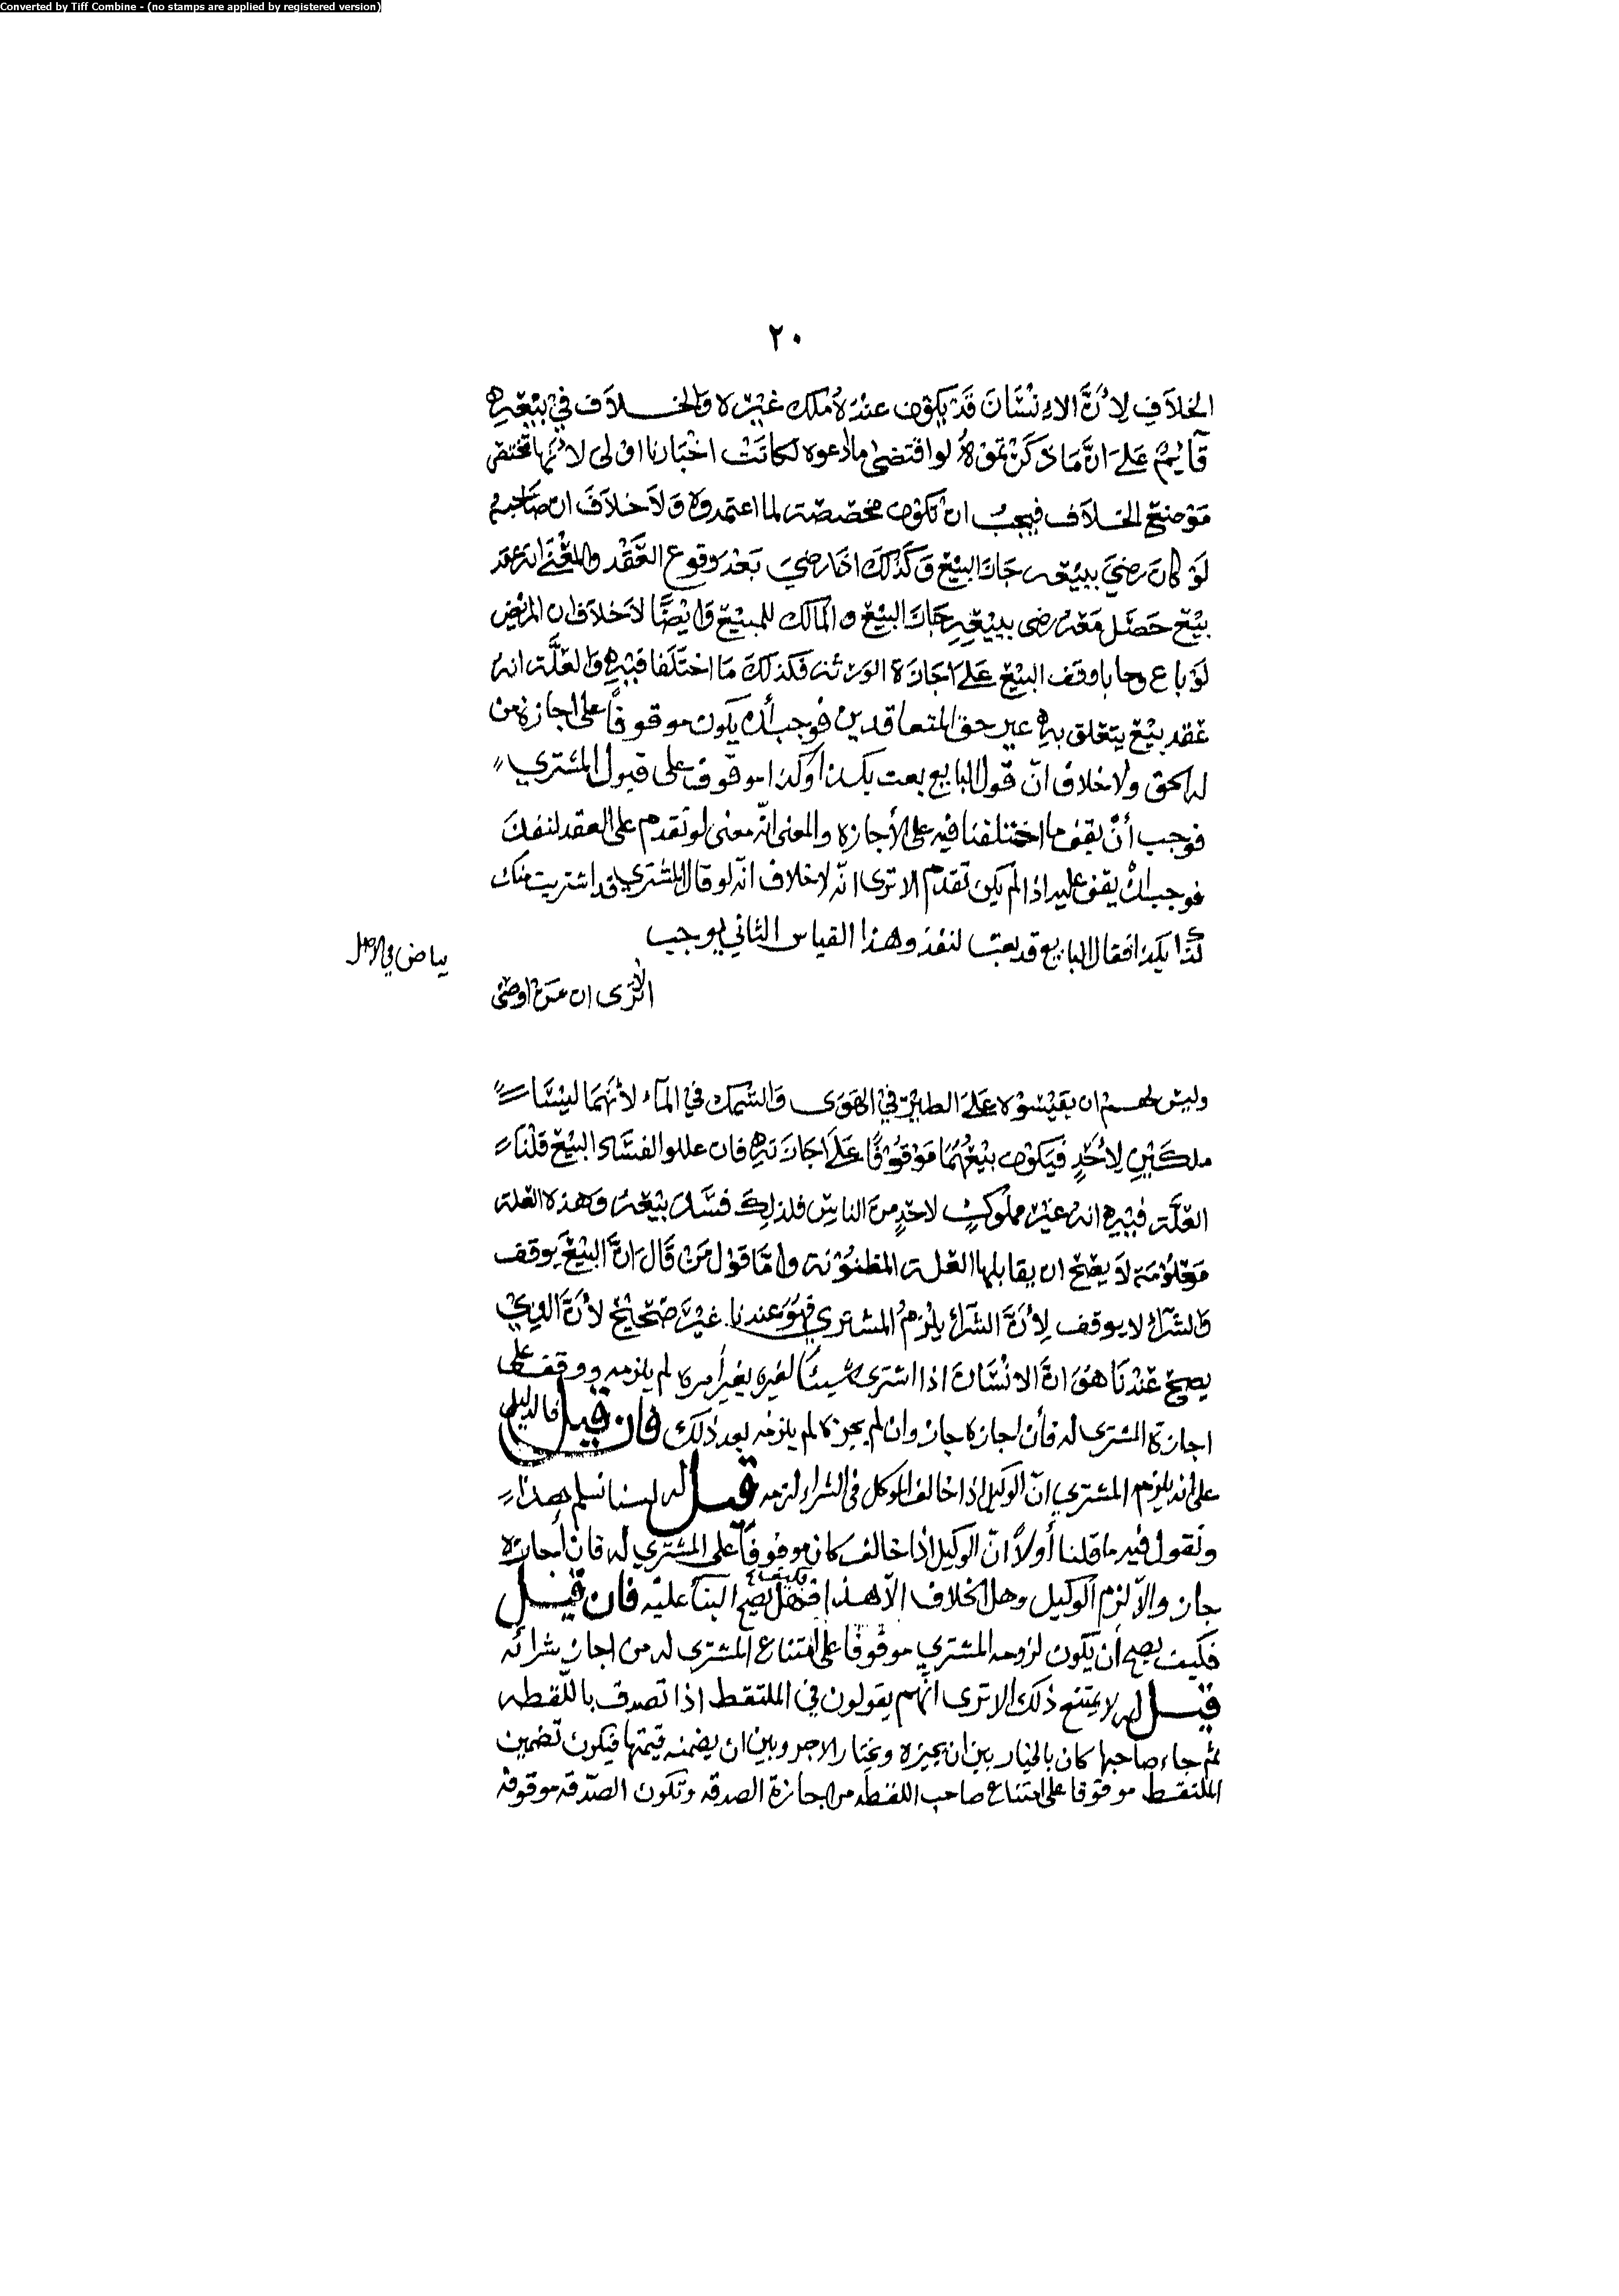 Converted by Tiff Combine - (no stamps are applied by registered version)
٢٠
الخلاف لأن الانسان قد يكون عنده ملك غيره والخلاف في بيعه
قايم على ان ما ذكرتموه لو اقتضى ما ادعوه لكانت اخبارنا اولى لانها تختص
موضع الخلاف فيجب ان تكون مخصصة لما اعتمدوه ولا خلاف ان صاحبه
لو كان رضي ببيعه جاز البيع وكذلك اذا رضي بعد وقوع العقد والمعنى انه عقد
بيع حصل معه رضى ببيعه جاز البيع والمالك للمبيع وايضا لا خلاف ان المريض
لو باع وحابا وقف البيع على اجازة الورثة فكذلك ما اختلفا فيه والعلة انه
عقد بيع يتعلق به غير حق المتعاقدين فوجب أن يكون موقوفاً على اجازة من
له الحق ولا خلاف انّ قول البايع بعت بكذا وكذا موقوف على قبول المشتري
فوجب أنْ يقف ما اختلفنا فيه على الأجازه والمعنى انّه معنى لو تقدم على العقد لنفذ
فوجب انْ يقف عليه اذا لم يكن تقدم الا ترى انّه لا خلاف انّه لو قال المشتري قد اشتريت منك
كذا بكذا فقال البايع قد بعت لنفذ وهذا القياس الثاني يوجب
بياض في الاصل
الا ترى ان من اوصى
وليس لهم ان يقيسوه على الطير في الهوى والسمك في المآء لأنهما ليسا
ملكين لأحدٍ فيكون بيعهما موقوفًا على اجازته فان عللو الفساد البيع قلنا
العلّة فيه انه غير مملوكٍ لاحدٍ من الناس فلذلك فسد بيعه وهذه العلة
معلومة لا يصح ان يقابلها العلة المظنونة وامّا قول من قال انّ البيع يوقف
والشرآء لا يوقف لأنّ الشرآء يلزم المشتري فهو عندنا غير صحيح لأنّ الذي
يصح عندنا هو انّ الانسان اذا اشترى شيئاً لغيره بغير أمره لم يلزمه ووقف على
اجازة المشترى له فأن اجازه جاز وان لم يجزه لم يلزمه بعد ذلك فان قيل فالدليل
على انه يلزم المشتري انّ الوكيل اذا خالف الموكل فى الشراء لزمه قيل له لسنا نسلم هذا
ونقول فيه ما قلنا أولاً انّ الوكيل اذا خالف كان موقوفاً على المشتري له فان أجازه
جاز والاّ لزم الوكيل وهل الخلاف الاّ هذا فكيف يصح البنآ عليه فان قيل
فكيف يصح أن يكون لزومه المشتري موقوفا على امتناع المشترى له من اجازة شرائه
قيل له لا يمتنع ذلك الا ترى انّهم يقولون في الملتقط اذا تصدق باللّقطه
ثم جاء صاحبها كان بالخيار بين ان يجيزه ويختار الاجر وبين ان يضمنه قيمتها فيكون تضمين
الملتقط موقوفا على امتناع صاحب اللقطه من اجازة الصدقه وتكون الصّدقه موقوفه